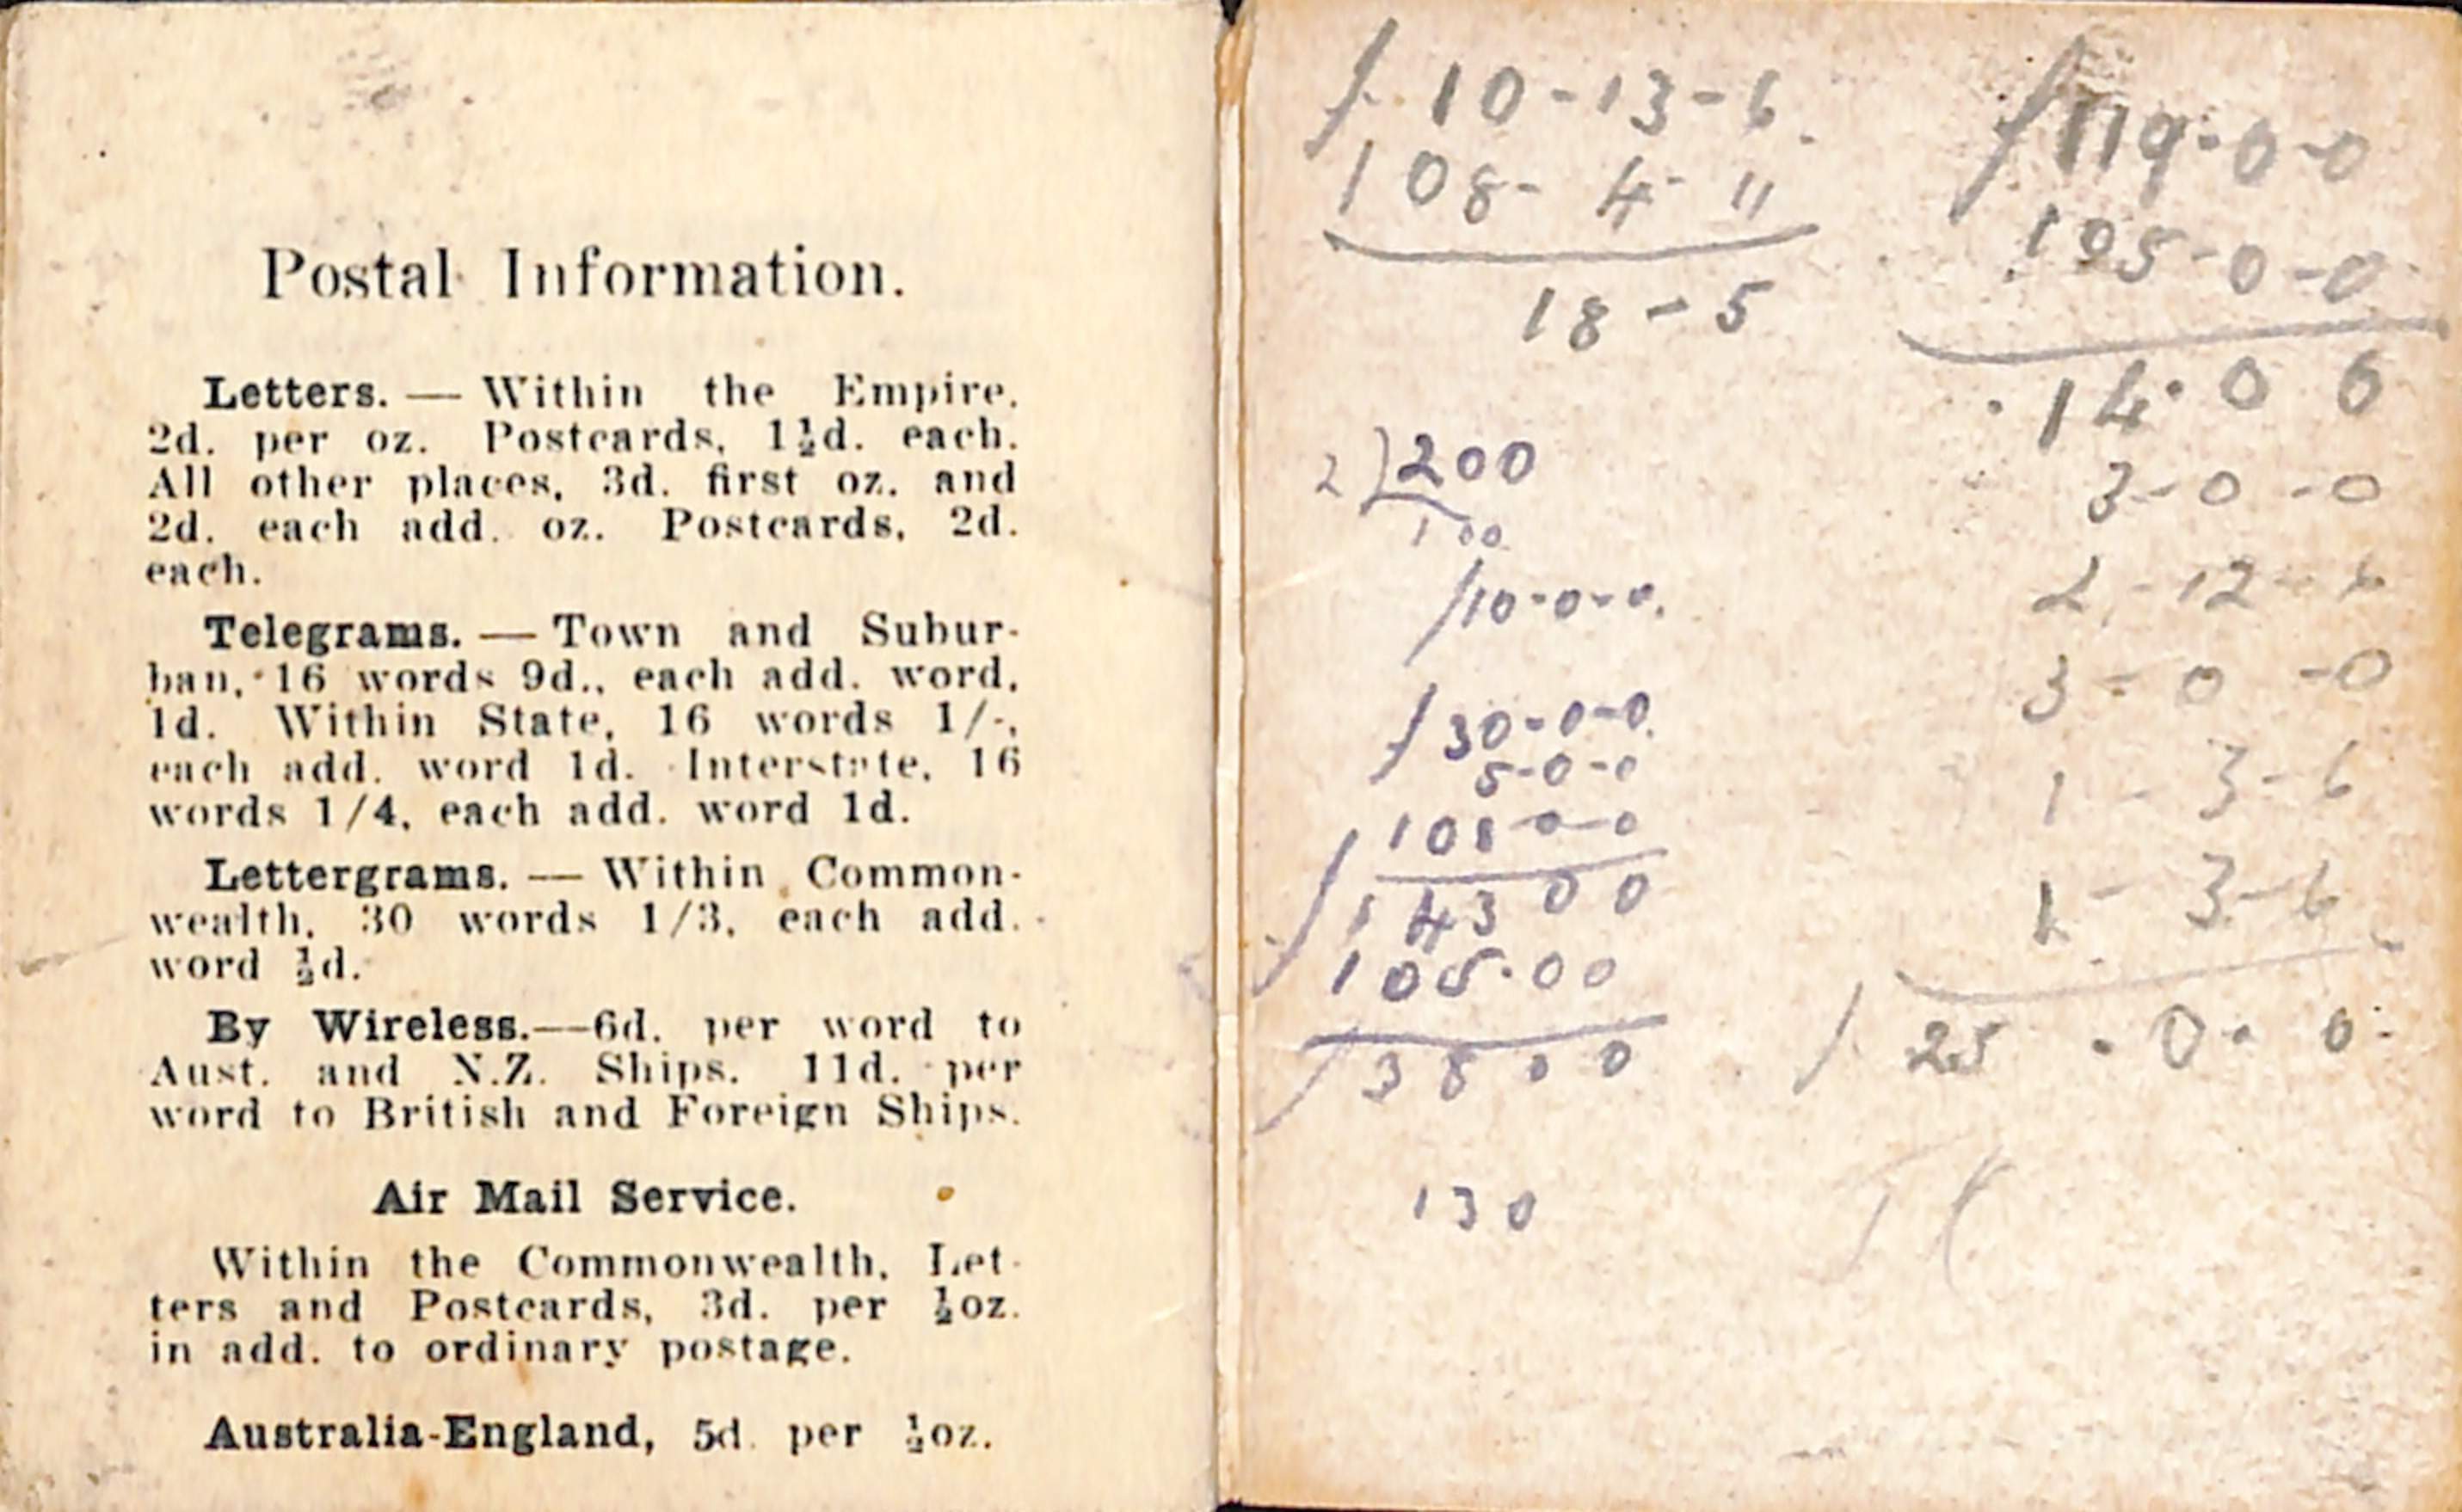 Postal Information.
Letters. — Within the Empire,
2d. per oz. Postcards, 1½d. each.
All other places, 3d. first oz. and
2d. each add. oz. Postcards, 2d.
each.
Telegrams. — Town and Subur-
ban, 16 words 9d., each add. word,
1d. Within State, 16 words 1/-,
each add. word 1d. Interstate, 16
words 1/4, each add. word 1d.
Lettergrams. — Within Common-
wealth, 30 words 1/3, each add.
word ½d.
By Wireless.—6d. per word to
Aust. and N.Z. Ships. 11d. per
word to British and Foreign Ships.
Air Mail Service.
Within the Commonwealth, Let-
ters and Postcards, 3d. per ½oz.
in add. to ordinary postage.
Australia-England, 5d. per ½oz.
10-13-6.
108-4-11
18-5
2)200
100
10-0-0.
30-0-0.
5-0-0
108-0-0
143 0 0
105.00
38 0 0
130
119-0-0
105-0-0
14.0 6
3-0-0
2-12-6
3-0-0
1-3-6
1-3-6
25.0.0